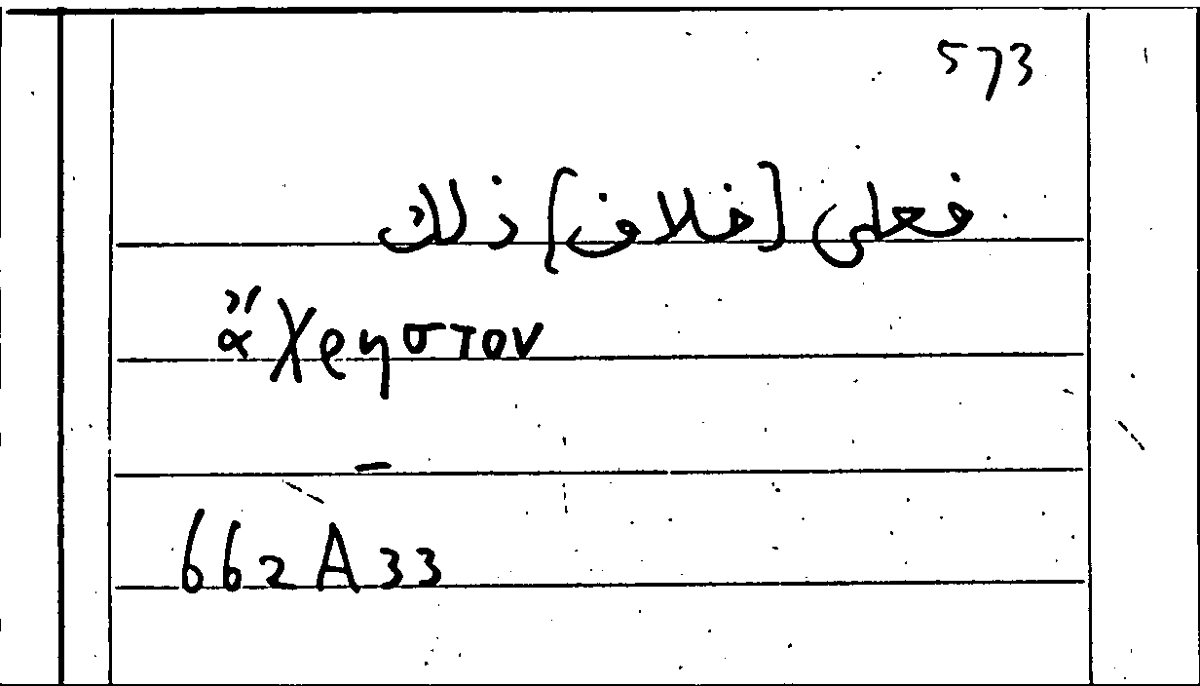 573
فعلى [خلاف] ذلك
ἄχρηστον
–
662A33